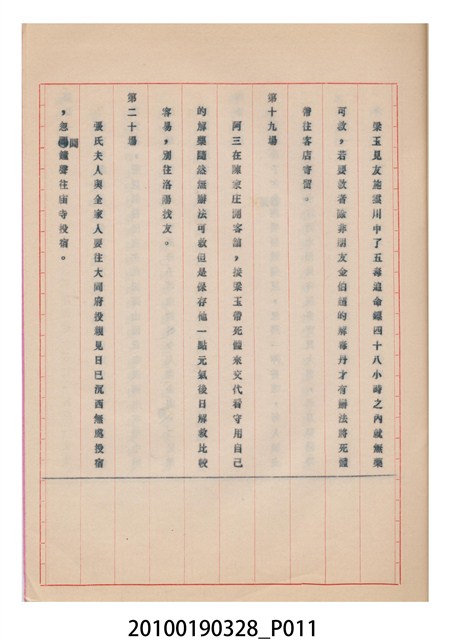 梁玉見友施漢川中了五毒追命鏢四十八小時之內就無藥
可救，若要救者除非朋友金伯通的解毒丹才有辦法將死體
帶往客店寄留。
第十九場
阿三在陳家庄開客舘，接梁玉帶死體來交代看守用自己
的解藥隨然無辦法可救但是保存他一點元氣後日解救比較
容易，別往洛陽找友。
第二十場
張氏夫人與全家人要往大同府投親見日已沉西無處投宿
，忽聞鐘聲往庙寺投宿。
20100190328_P011